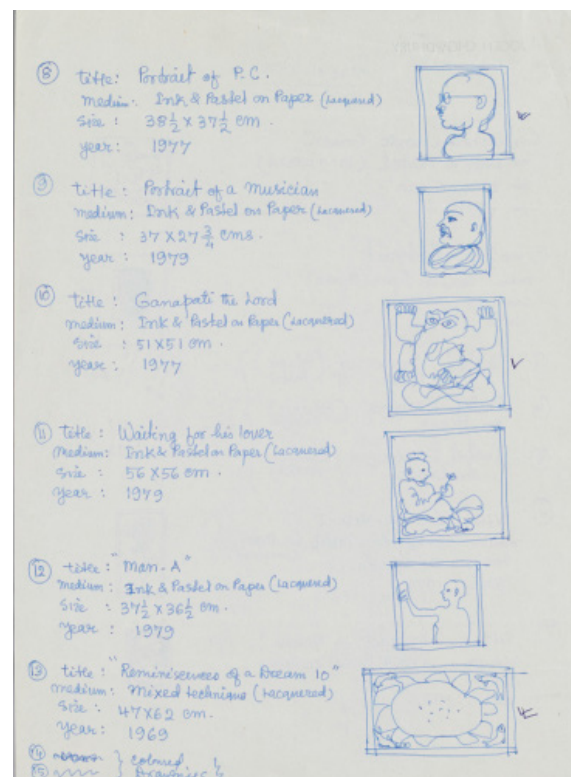 ⑧ title: Portrait of P.C.
medium: Ink & Pastel on Paper (Lacquered)
Size : 38½ x 37½ cm.
year: 1977
⑨ title: Portrait of a Musician
medium: Ink & Pastel on Paper (Lacquered)
Size : 37 X 27¾ cms.
year : 1979
⑩ title : Ganapati the Lord
medium: Ink & Pastel on Paper (Lacquered)
Size : 51 X 51 cm.
year : 1977
⑪ title : Waiting for his lover
Medium: Ink & Pastel on Paper (Lacquered)
Size : 56 X 56 cm.
year : 1979
⑫ title : "Man-A"
medium: Ink & Pastel on Paper (Lacquered)
Size : 37½ x 36½ cm.
year : 1979
⑬ title : "Reminiscences of a Dream 10"
medium: Mixed technique (Lacquered)
Size : 47X62 cm.
Year : 1969
⑭ } coloured
⑮ } Drawings